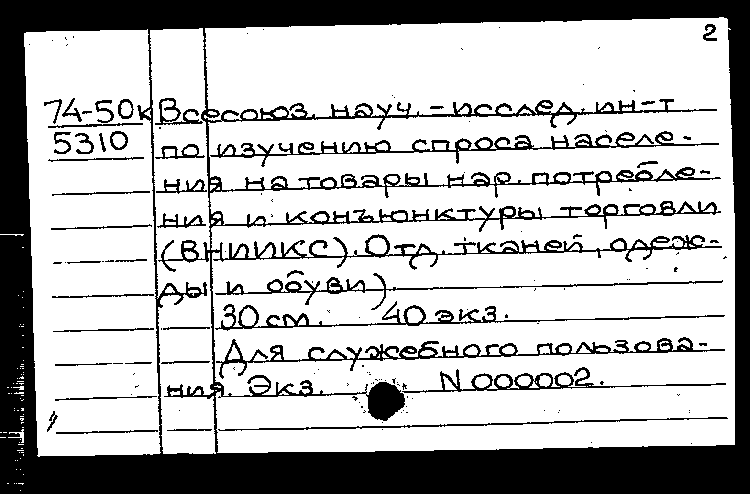 2
74-50к Всесоюз. науч.-исслед. ин-т
5310 по изучению спроса населе-
ния на товары нар. потребле-
ния и конъюнктуры торговли
(ВНИИКС). Отд. тканей, одеж-
ды и обуви).
30 см. 40 экз.
Для служебного пользова-
ния. Экз. N 000002.